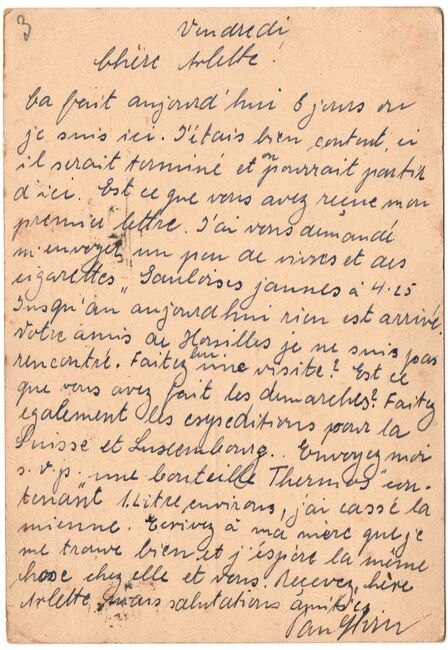 3
Vendredi
Chère Arlette!
Ca fait aujourd'hui 6 jours ou
je suis ici. J'étais bien content, si
il serait terminé et on pourrait partir
d'ici. Est ce que vous avez reçue mon
premier lettre. J'ai vous demandé
m'envoyez un peu de vivres et des
cigarettes „ Gauloises jaunes à 4.25
Jusqu'au aujourd'hui rien est arrivé.
Votre amis de je ne suis pas
rencontré. Faitez lui une visite? Est ce
que vous avez fait les demarches? Faitez
egalement les expeditions pour la
Suisse et Luxembourg.. Envoyez moi
s.v.p. une bouteille „Thermos" con-
tenant 1 Litre environs, j'ai cassé la
mienne. Ecrivez à ma mère que je
me trouve bien et j'éspère la même
chose chez elle et vous. Recevez, chère
Arlette, mais salutations